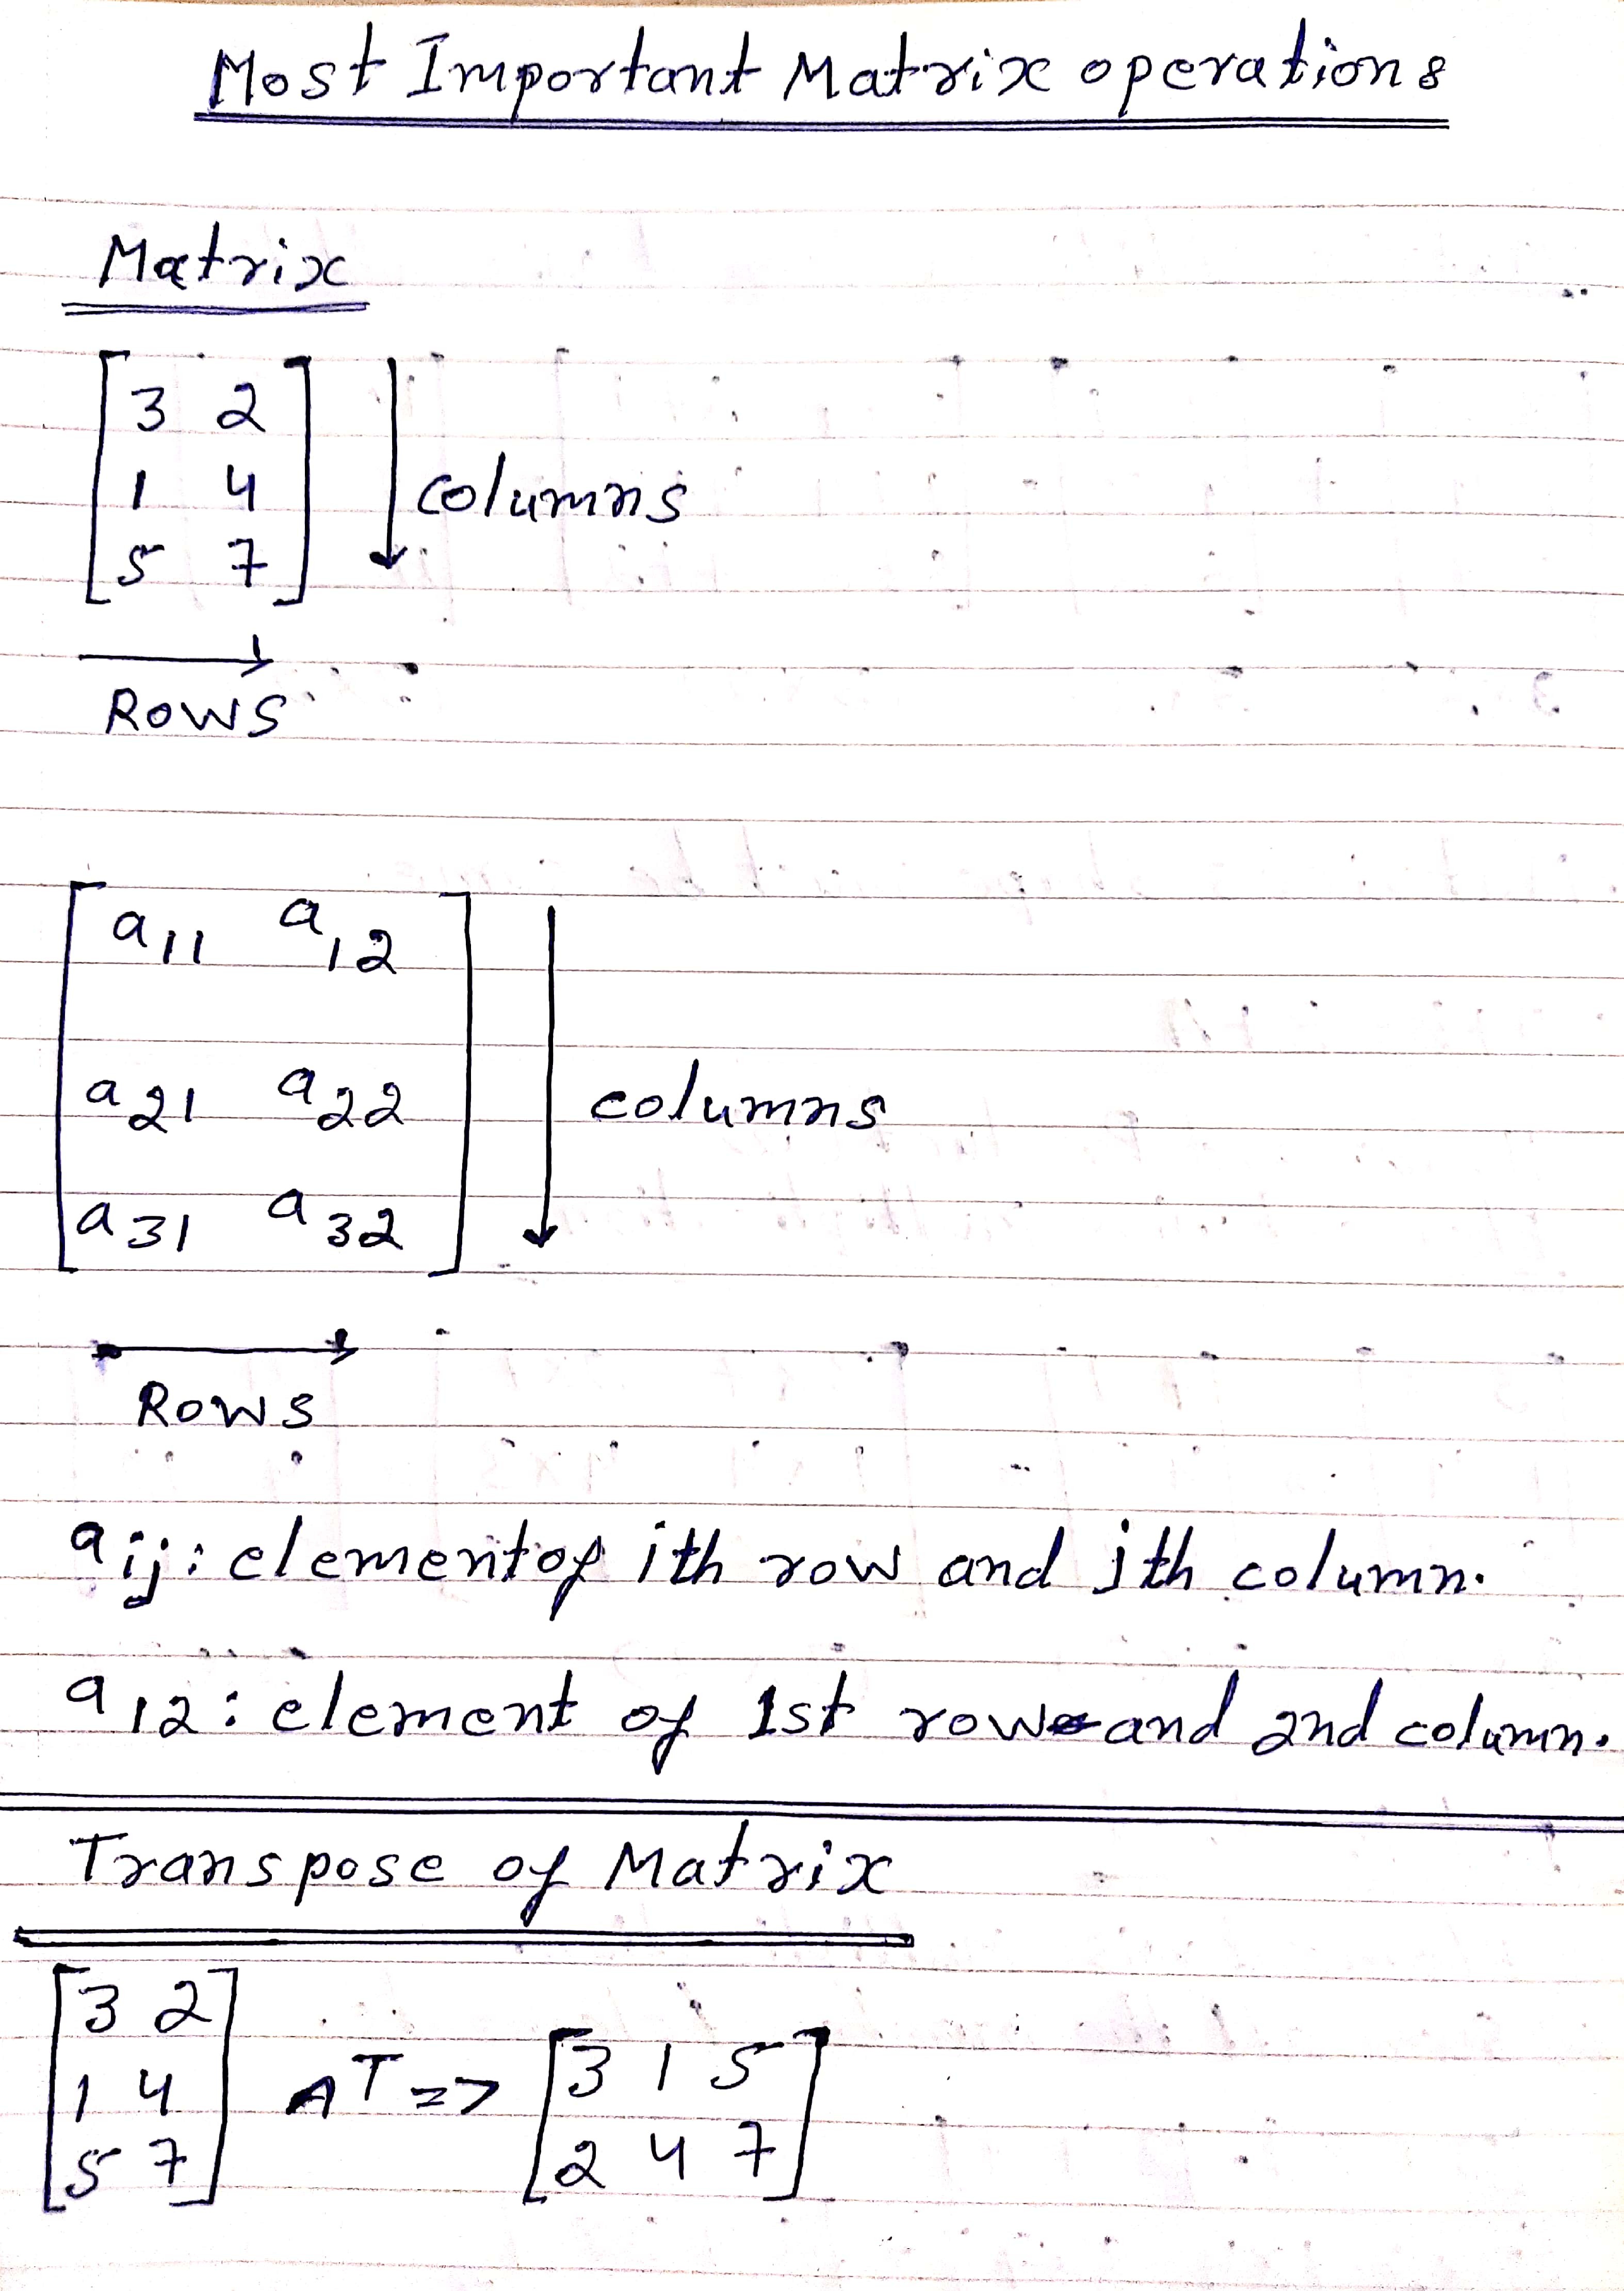 Most Important Matrix operations
Matrix
3 2
1 4
5 7
columns
Rows
a11 a12
a21 a22
a31 a32
columns
Rows
aij: element of ith row and jth column.
a12: element of 1st row and 2nd column.
Transpose of Matrix
3 2
1 4
5 7
A^T =>
3 1 5
2 4 7